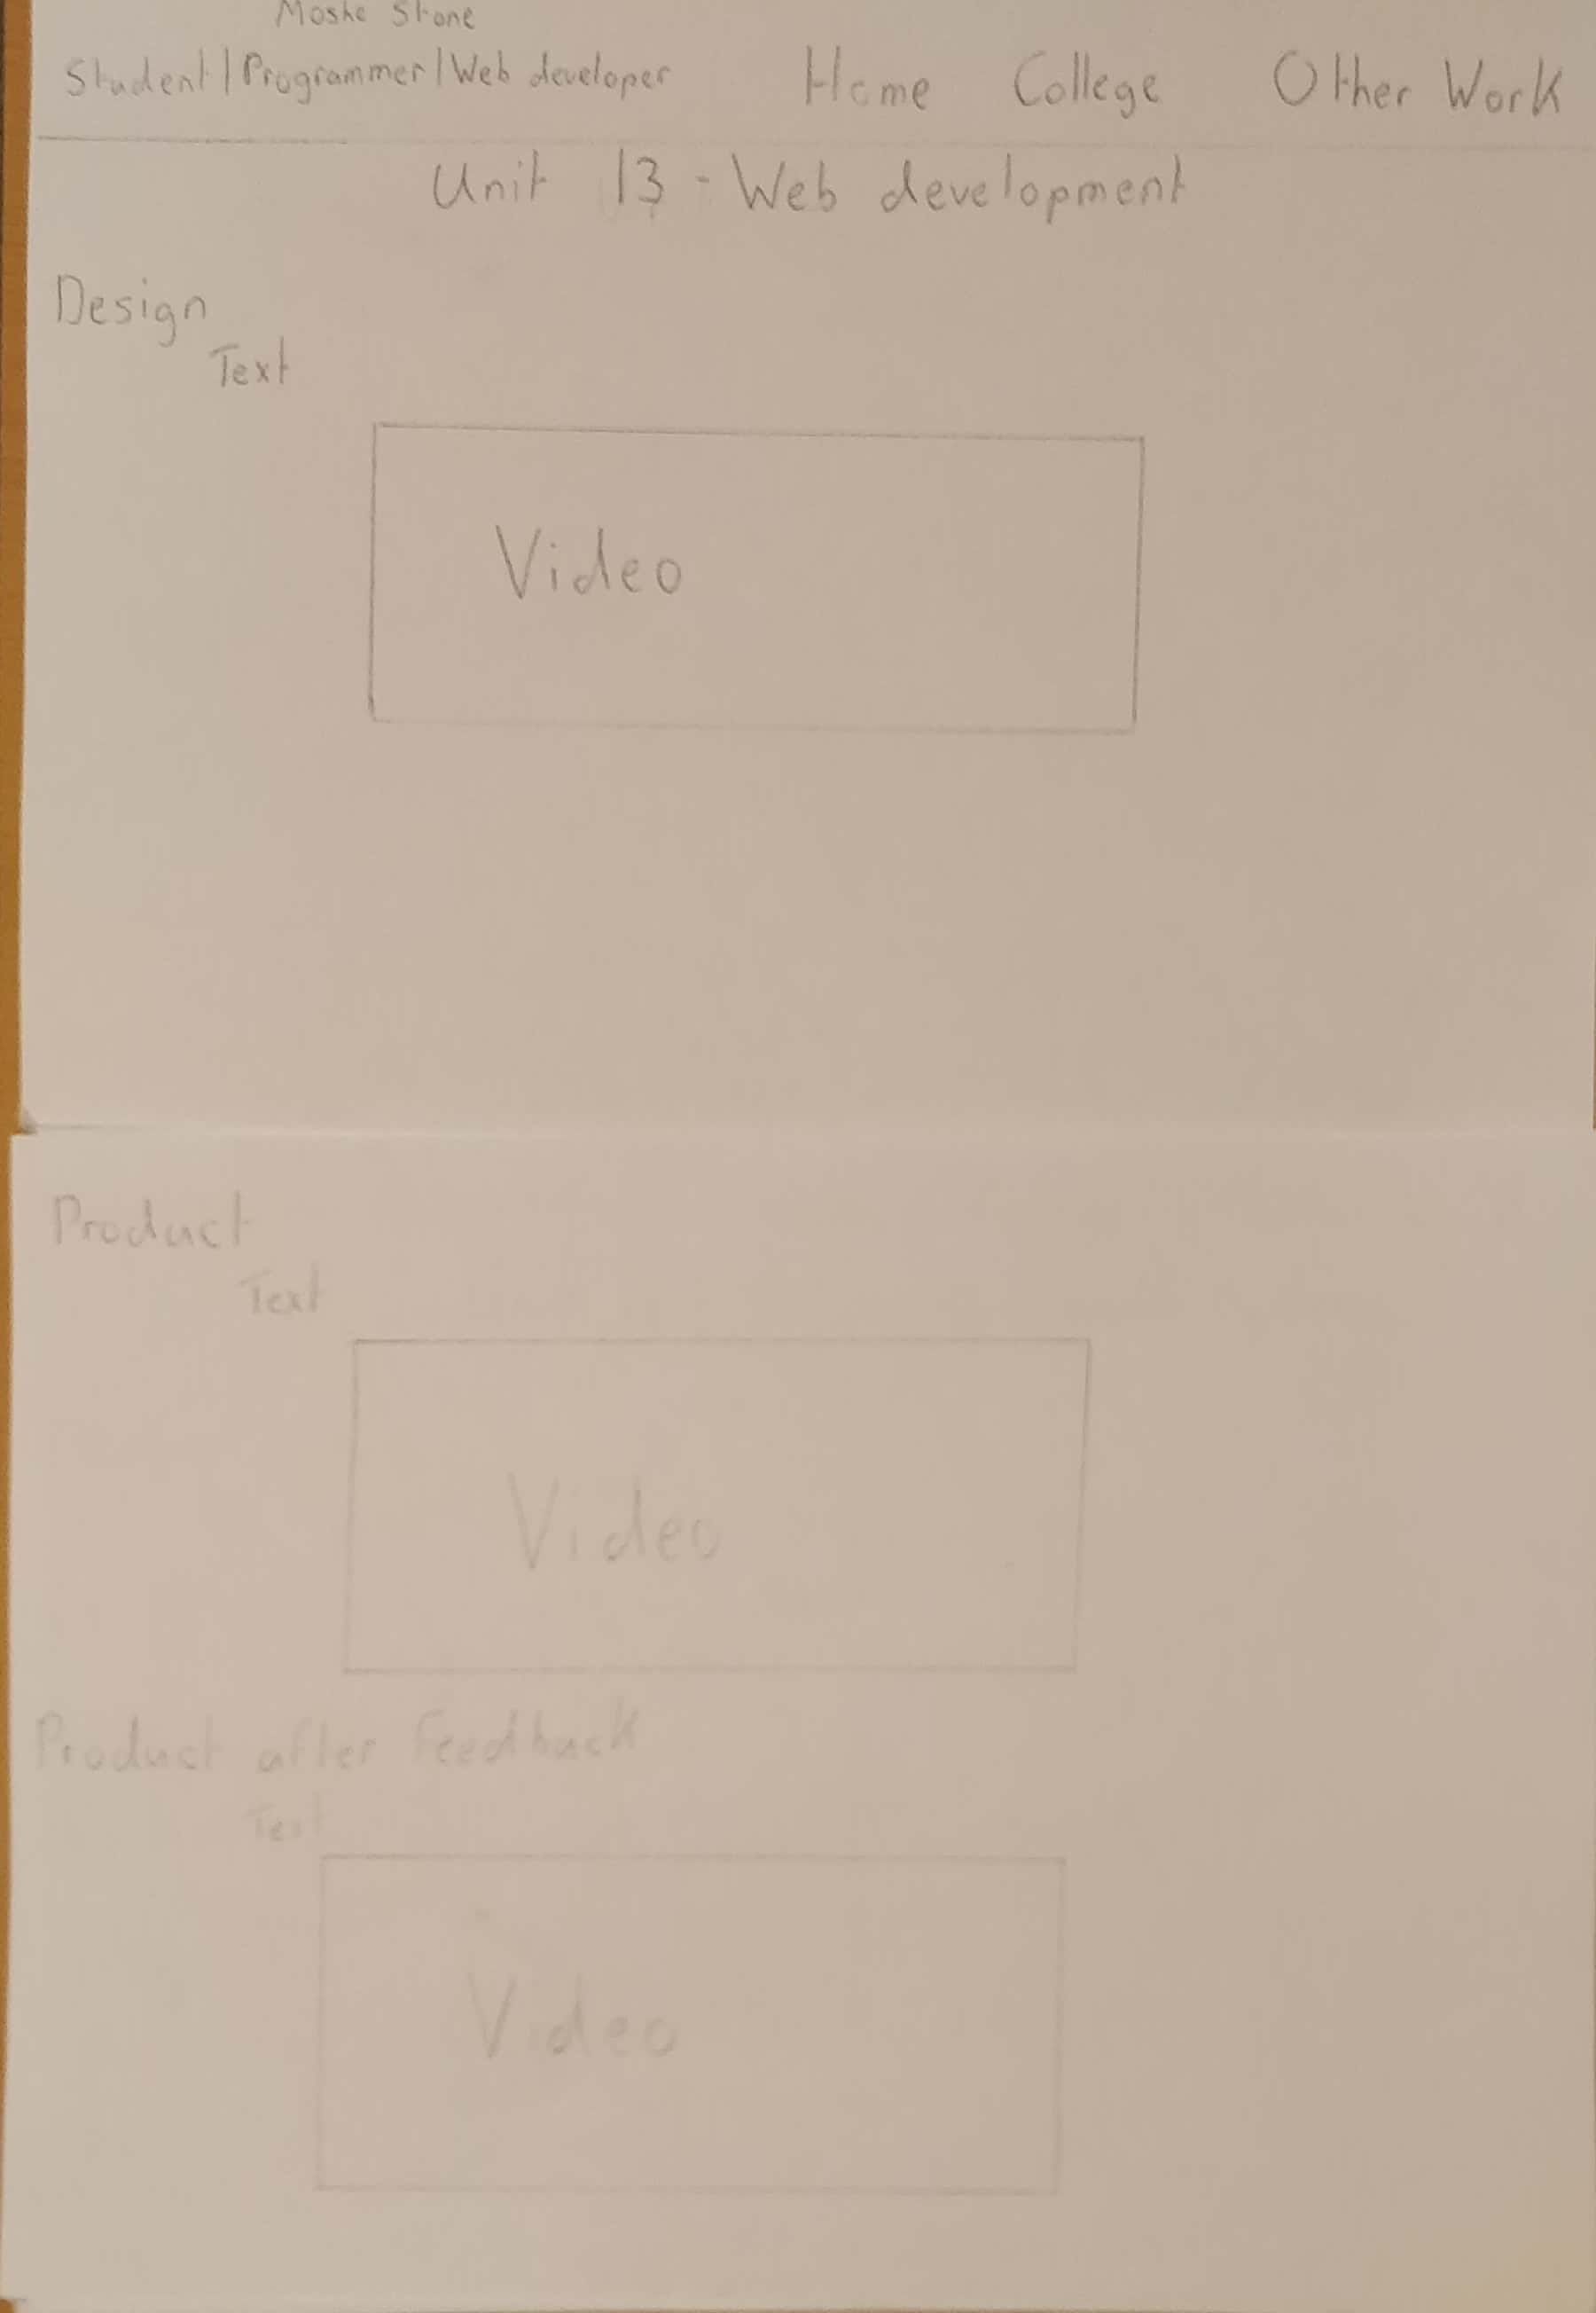 Moshe Stone
Student/Programmer/Web developer Home College Other Work
Unit 13 - Web development
Design
Text
Video
Product
Text
Video
Product after Feedback
Text
Video